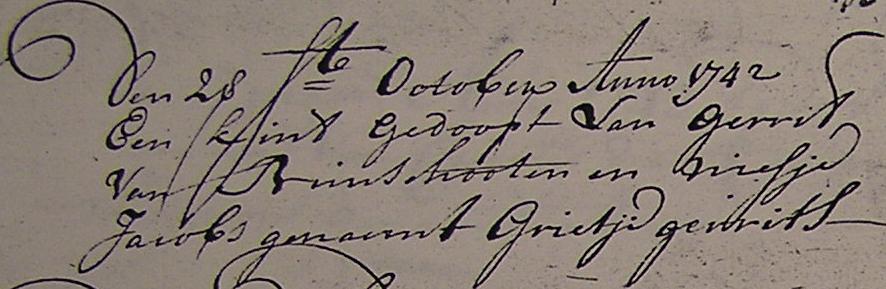 Den 28 ste October Anno 1742
Een kint gedoopt Van Gerrit
Van Rinschooten en niesje
Jacobs genaemt Grietje gerrits